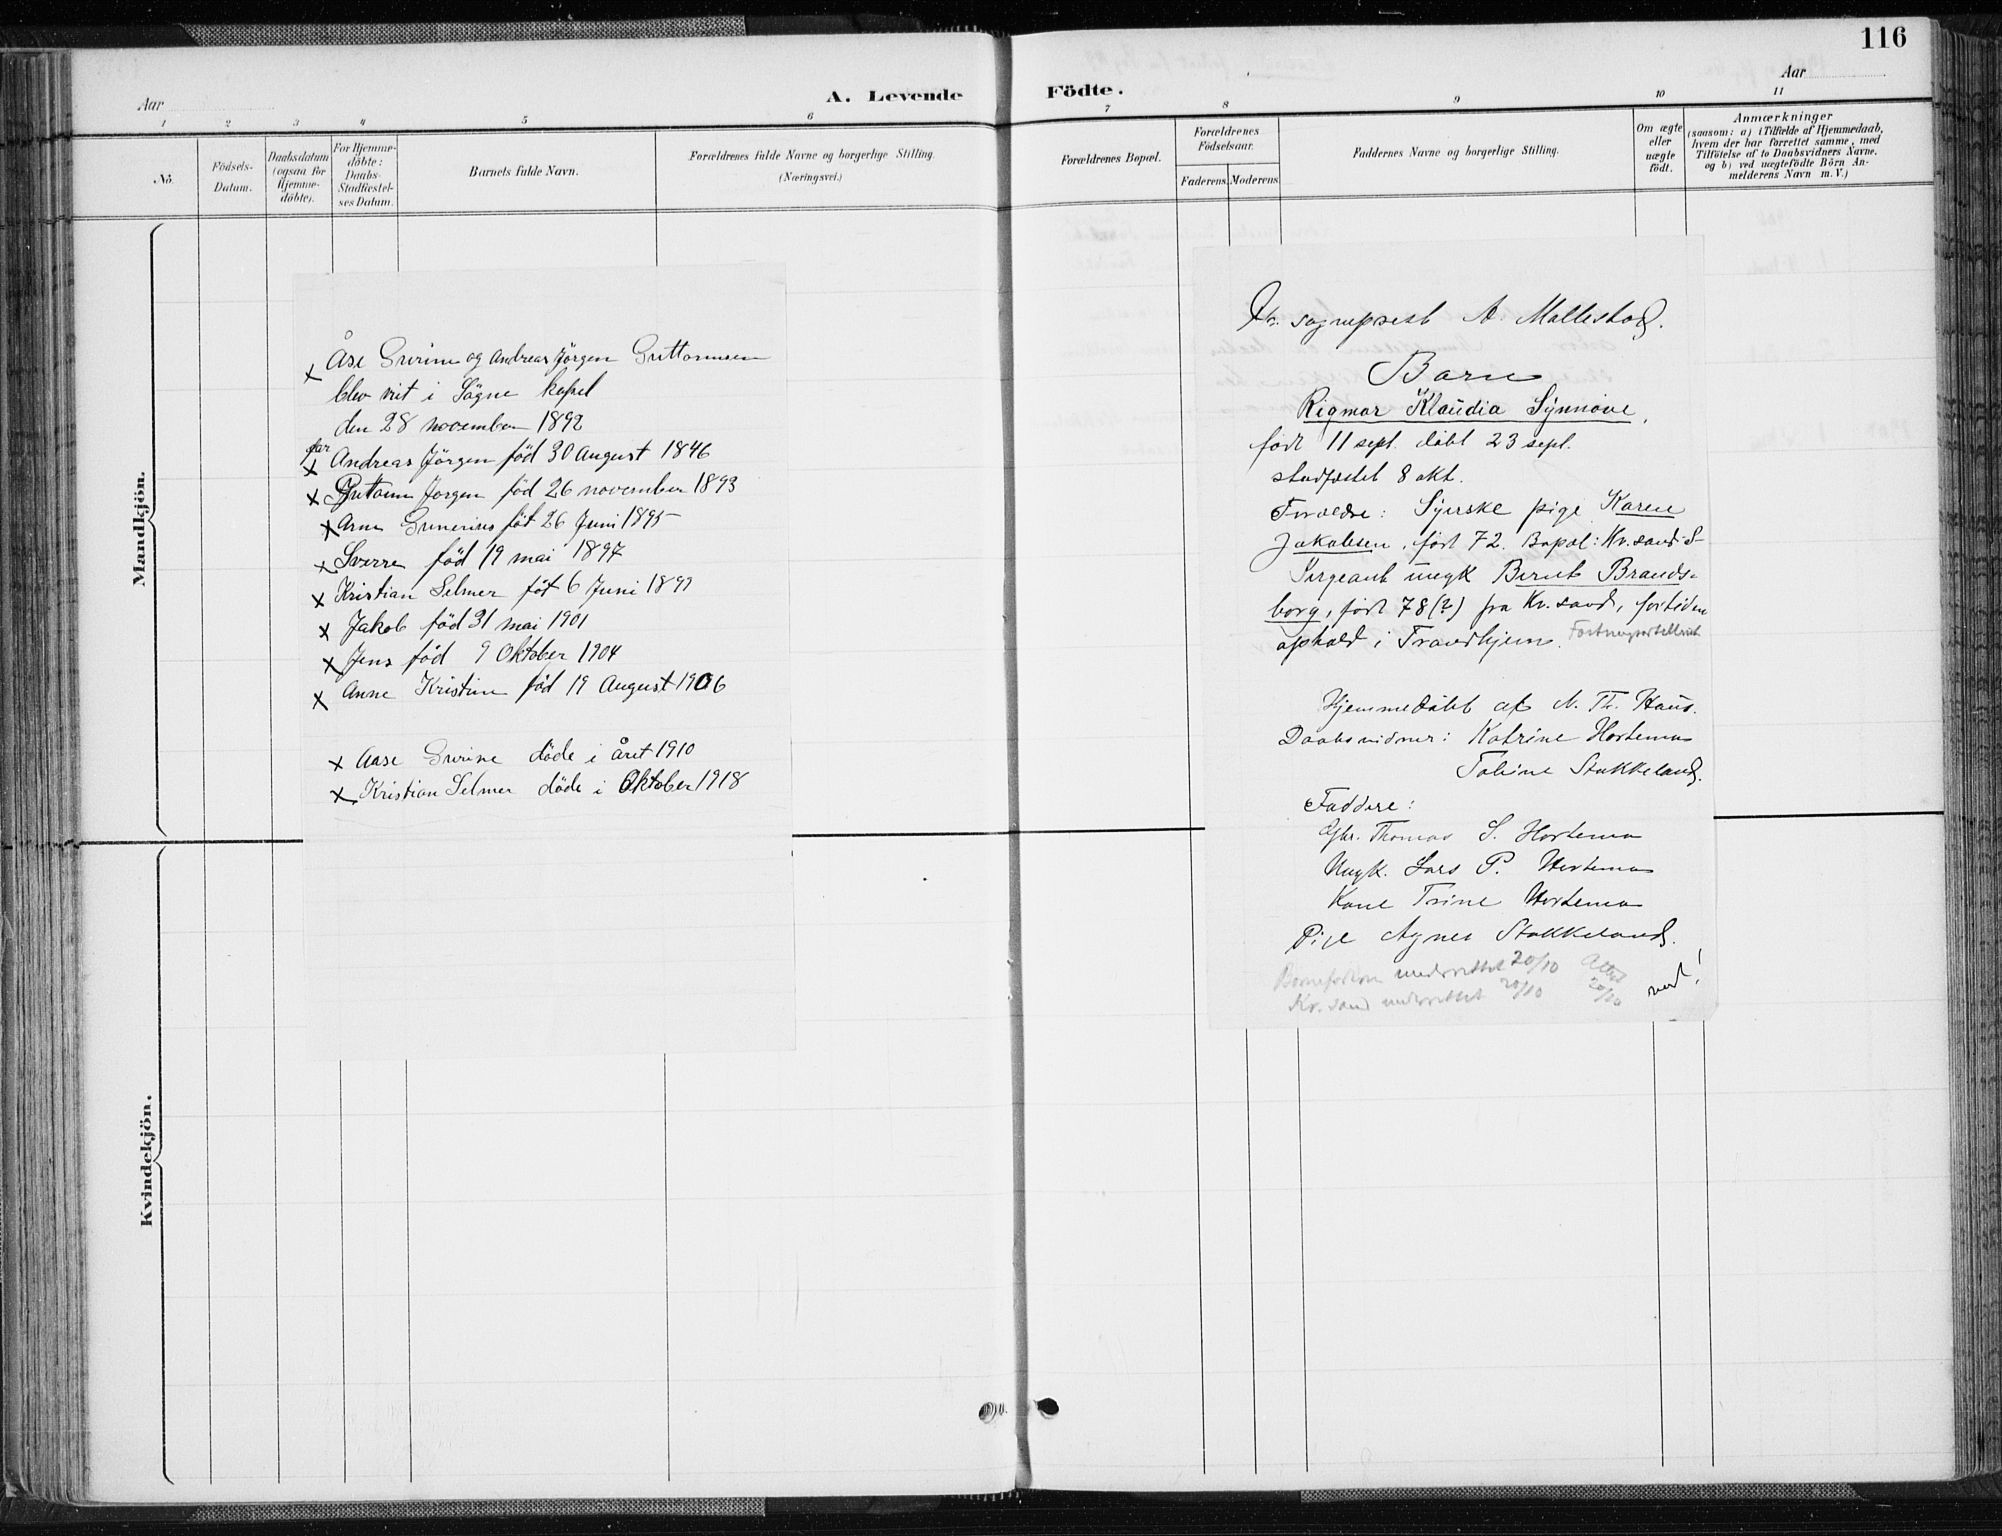 116
Aar
A. Levende
Födte.
Aar
1 2 3 4 5 6 7 8 9 10 11
No.
Födsels-
Datum.
Daabsdatum
(ogsaa for
Hjemme-
döbte).
For Hjemme-
döbte:
Daabs-
Stadfæstel-
ses Datum.
Barnets fulde Navn.
Forældrenes fulde Navne og borgerlige Stilling.
(Næringsvei.)
Forældrenes Bopæl.
Forældrenes
Födselsaar.
Faderens.
Moderens.
Faddernes Navne og borgerlige Stilling.
Om ægte
eller
uægte
födt.
Anmærkninger
(saasom: a) i Tilfælde af Hjemmedaab,
hvem der har forrettet samme, med
Tilföielse af to Daabsvidners Navne.
og b) ved uægtefödte Börn An-
melderens Navn m. V.)
Mandkjön.
Kvindekjön.
x Åse Gurine og Andreas Jörgen Guttormsen
blev vit i Sögne kapel
den 28 november 1892
far
x Andreas Jörgen föd 30 August 1846
x Guttorm Jorgen föd 26 november 1893
x Arne Gunerius föt 26 Juni 1895
x Sverre föd 19 mai 1897
x Kristian Selmer föt 6 Juni 1899
x Jakob föd 31 mai 1901
x Jens föd 9 Oktober 1904
x Anne Kristine föd 19 August 1906
x Aase Gurine döde i året 1910
x Kristian Selmer döde i Oktober 1918
Hr. sogneprest A. Mallestad.
Barn
Rigmor Klaudia Synnöve,
födt 11 sept. döbt 23 sept.
stadfæstet 8 okt.
Forældre: Syerske pige Karen
Jakobsen, födt 72. Bopæl: Kr.sand S
Sergeant ungk Bernt Brands-
borg, födt 78 (?) fra Kr.sand, fortiden
ophold i Trondhjem.
Hjemmedöbt af N. Th. Haus.
Daabsvidner: Katrine Hortemo
Tobine Stokkeland.
Faddere:
Gbr. Thomas S. Hortemo
Ungk. Lars P. Hortemo
Kone Trine Hortemo
Pige Agnes Stokkeland.
underrettet 20/10 Attest 20/10
Kr. sand underrettet 20/10
vend!